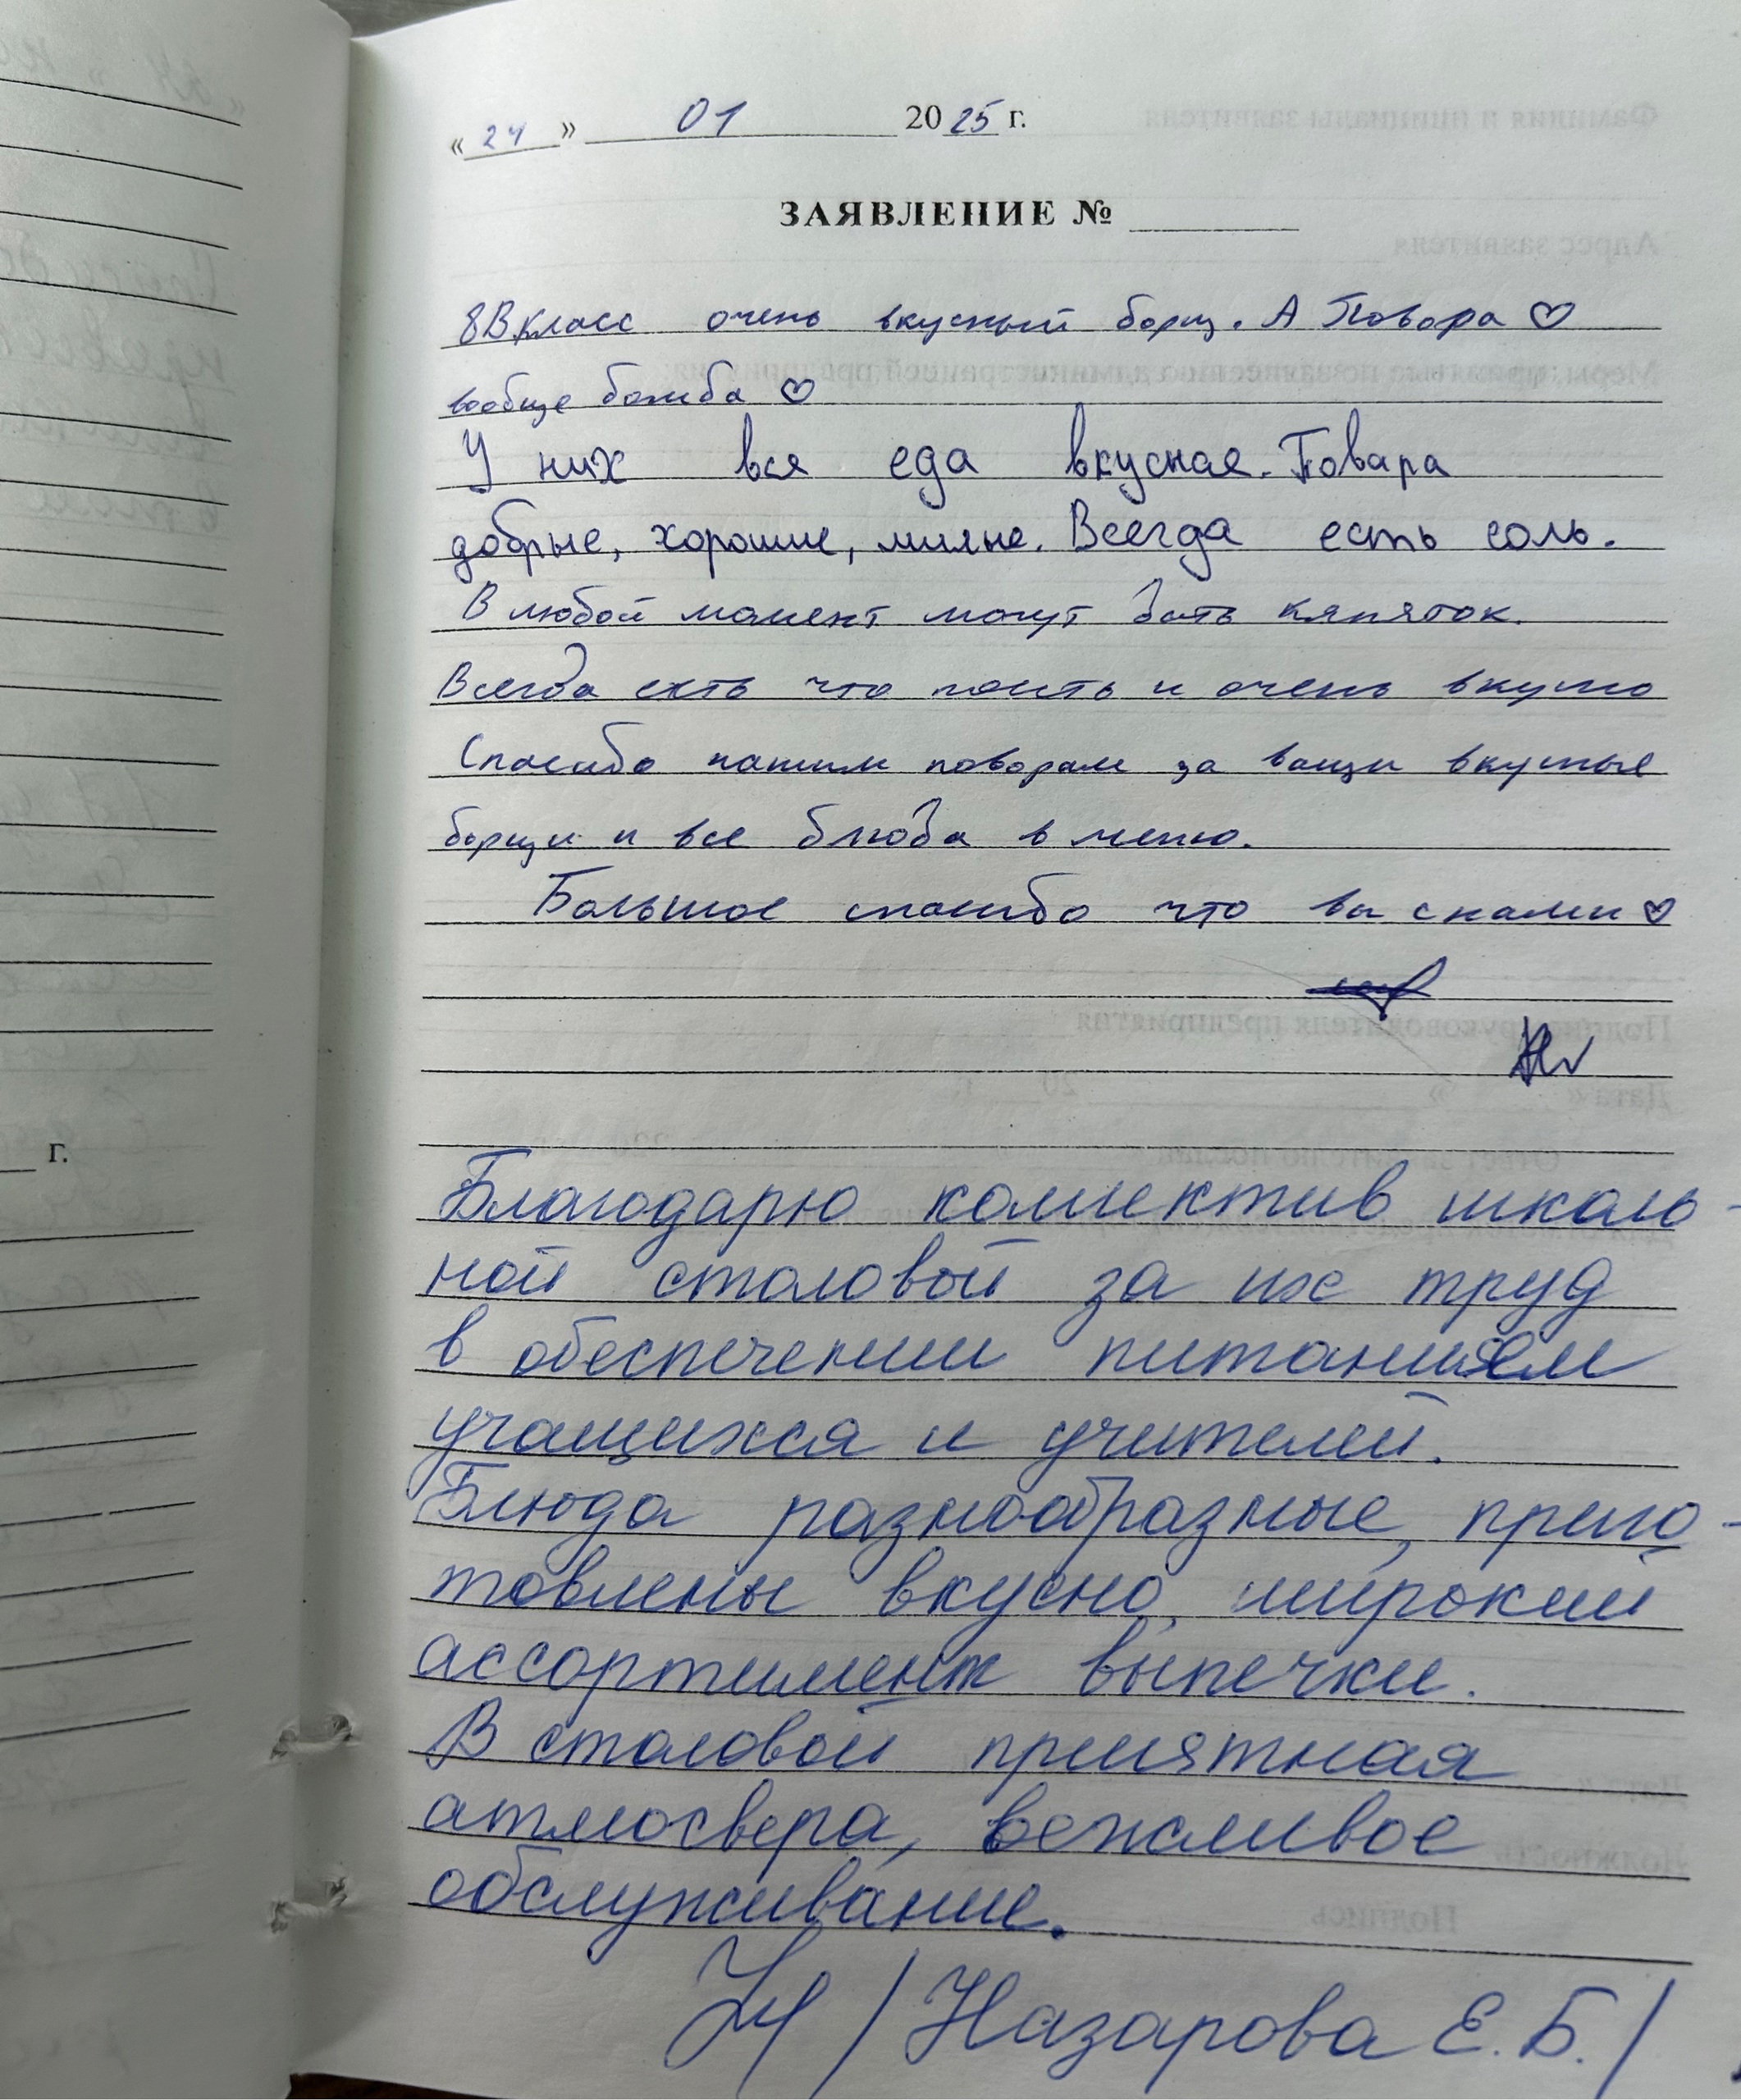 « 24 » 01 2025 г.
ЗАЯВЛЕНИЕ №
8В класс очень вкусный борщ. А Повора ♡
вообще бомба ♡
У них вся еда вкусная. Повара
добрые, хорошие, милые. Всегда есть соль.
В любой момент могут дать кяпяток.
Всегда есть что поить и очень вкусно
Спасибо нашим поворам за ваши вкусные
борщи и все блюда в меню.
Большое спасибо что вы с нами ♡
Благодарю коллектив школь-
ной столовой за их труд
в обеспечении питанием
учащихся и учителей.
Блюда разнообразные, приго-
товлены вкусно, широкий
ассортимент выпечки.
В столовой приятная
атмосвера, вежливое
обслуживание.
/ Назарова Е.Б. /
г.